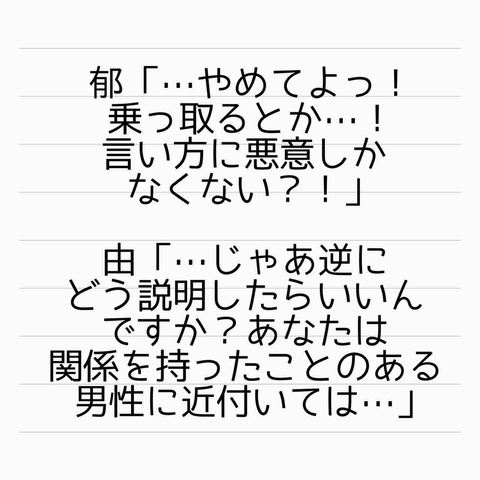 郁「…やめてよっ！
乗っ取るとか…！
言い方に悪意しか
なくない？！」
由「…じゃあ逆に
どう説明したらいいん
ですか？あなたは
関係を持ったことのある
男性に近付いては…」